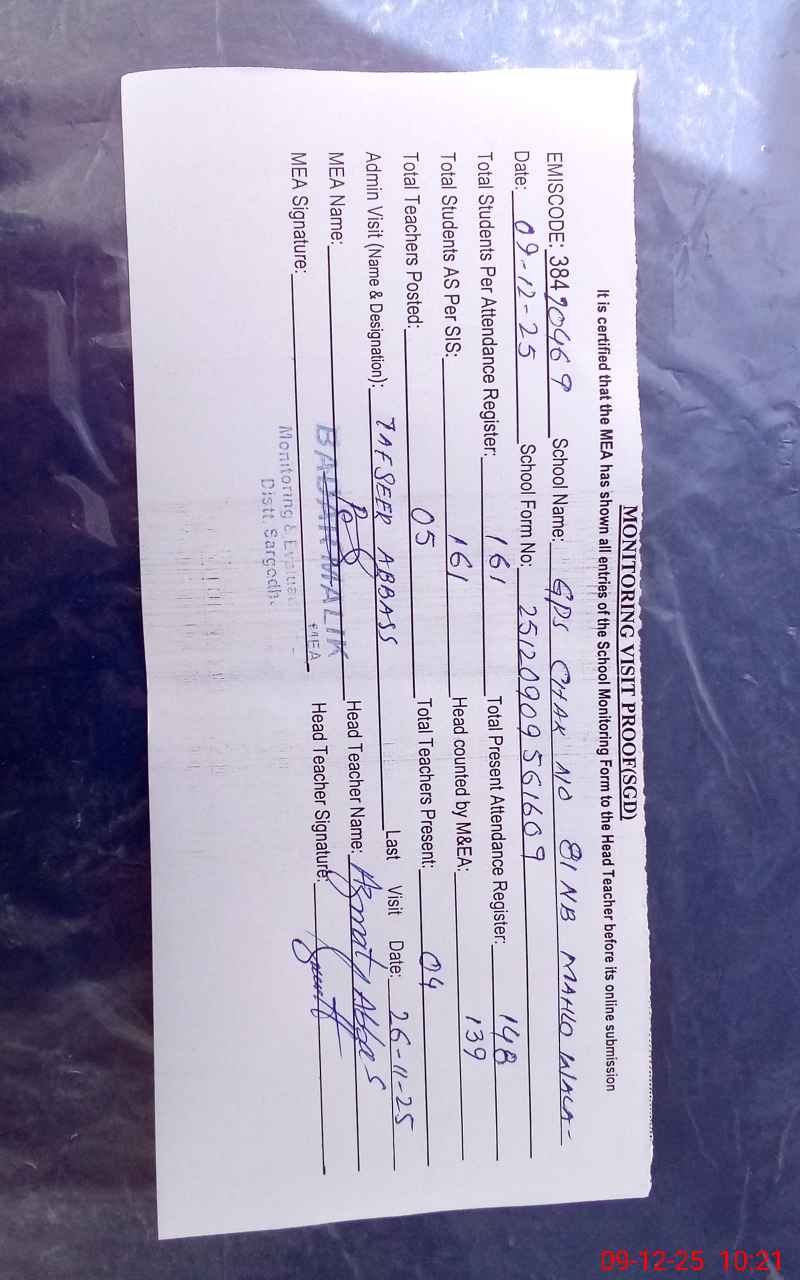 MONITORING VISIT PROOF(SGD)
It is certified that the MEA has shown all entries of the School Monitoring Form to the Head Teacher before its online submission
EMISCODE: 38490469 School Name: GPS CHAK NO 81NB MAHLO WALA-
Date: 09-12-25 School Form No: 25120909561609
Total Students Per Attendance Register: 161 Total Present Attendance Register: 148
Total Students AS Per SIS: 161 Head counted by M&EA: 139
Total Teachers Posted: 05 Total Teachers Present: 04
Admin Visit (Name & Designation): ZAFSEER ABBASS Last Visit Date: 26-11-25
MEA Name: BABAR MALIK Head Teacher Name: Azmat Abbas
MEA Signature: MEA Head Teacher Signature:
Monitoring &
Distt. Sargodh
09-12-25 10:21